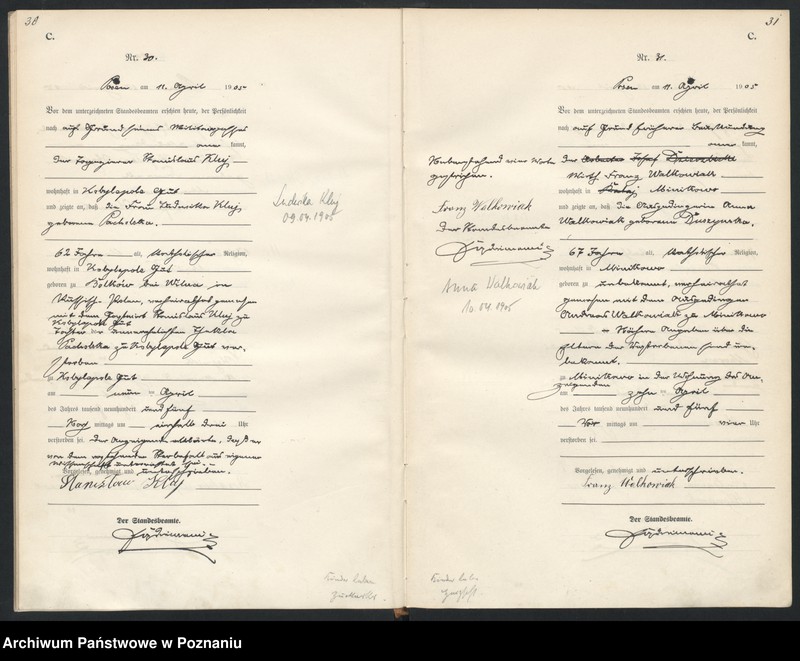 30
C.
Nr. 30.
Posen am 11. April 1905
Vor dem unterzeichneten Standesbeamten erschien heute, der Persönlichkeit
nach auf Grund seines
kannt,
der Stanislaus Kluj
wohnhaft in Kobylepole Gut
und zeigte an, daß die Frau Ludwika Kluj,
geborene Pacholska,
62 Jahre alt, katholischer Religion,
wohnhaft in Kobylepole Gut
geboren zu bei Wilna in
Russisch-Polen, verheirathet gewesen
mit dem Stanislaus Kluj zu
Kobylepole Gut
Tochter der
Pacholska zu Kobylepole Gut ver-
storben
zu Kobylepole Gut
am neun April
des Jahres tausend neunhundert und fünf
Vor mittags um einhalb drei Uhr
verstorben sei. Der Anzeigende erklärte, daß er
von dem Sterbefall aus eigener
Wissenschaft unterrichtet sei.
Vorgelesen, genehmigt und unterschrieben.
Stanislaw Kluj
Der Standesbeamte.
Ludwika Kluj
09.04.1905
31
C.
Nr. 31.
Posen am 11. April 1905
Vor dem unterzeichneten Standesbeamten erschien heute, der Persönlichkeit
nach auf Grund früherer Beurkundung
kannt,
der
Wirth Franz Walkowiak
wohnhaft in Minikowo
und zeigte an, daß die Ausgedingerin Anna
Walkowiak geborene Duszynska,
67 Jahre alt, katholischer Religion,
wohnhaft in Minikowo
geboren zu unbekannt, verheirathet
gewesen mit dem Ausgedinger
Andreas Walkowiak zu Minikowo
Nähere Angaben über die
Eltern der Verstorbenen sind un-
bekannt.
zu Minikowo in der Wohnung des An-
zeigenden
am zehn April
des Jahres tausend neunhundert und fünf
Vor mittags um vier Uhr
verstorben sei.
Vorgelesen, genehmigt und unterschrieben.
Franz Walkowiak
Der Standesbeamte.
Nebenstehend vier Worte
gestrichen.
Franz Walkowiak
Der Standesbeamte
Anna Walkowiak
10.04.1905
Archiwum Państwowe w Poznaniu